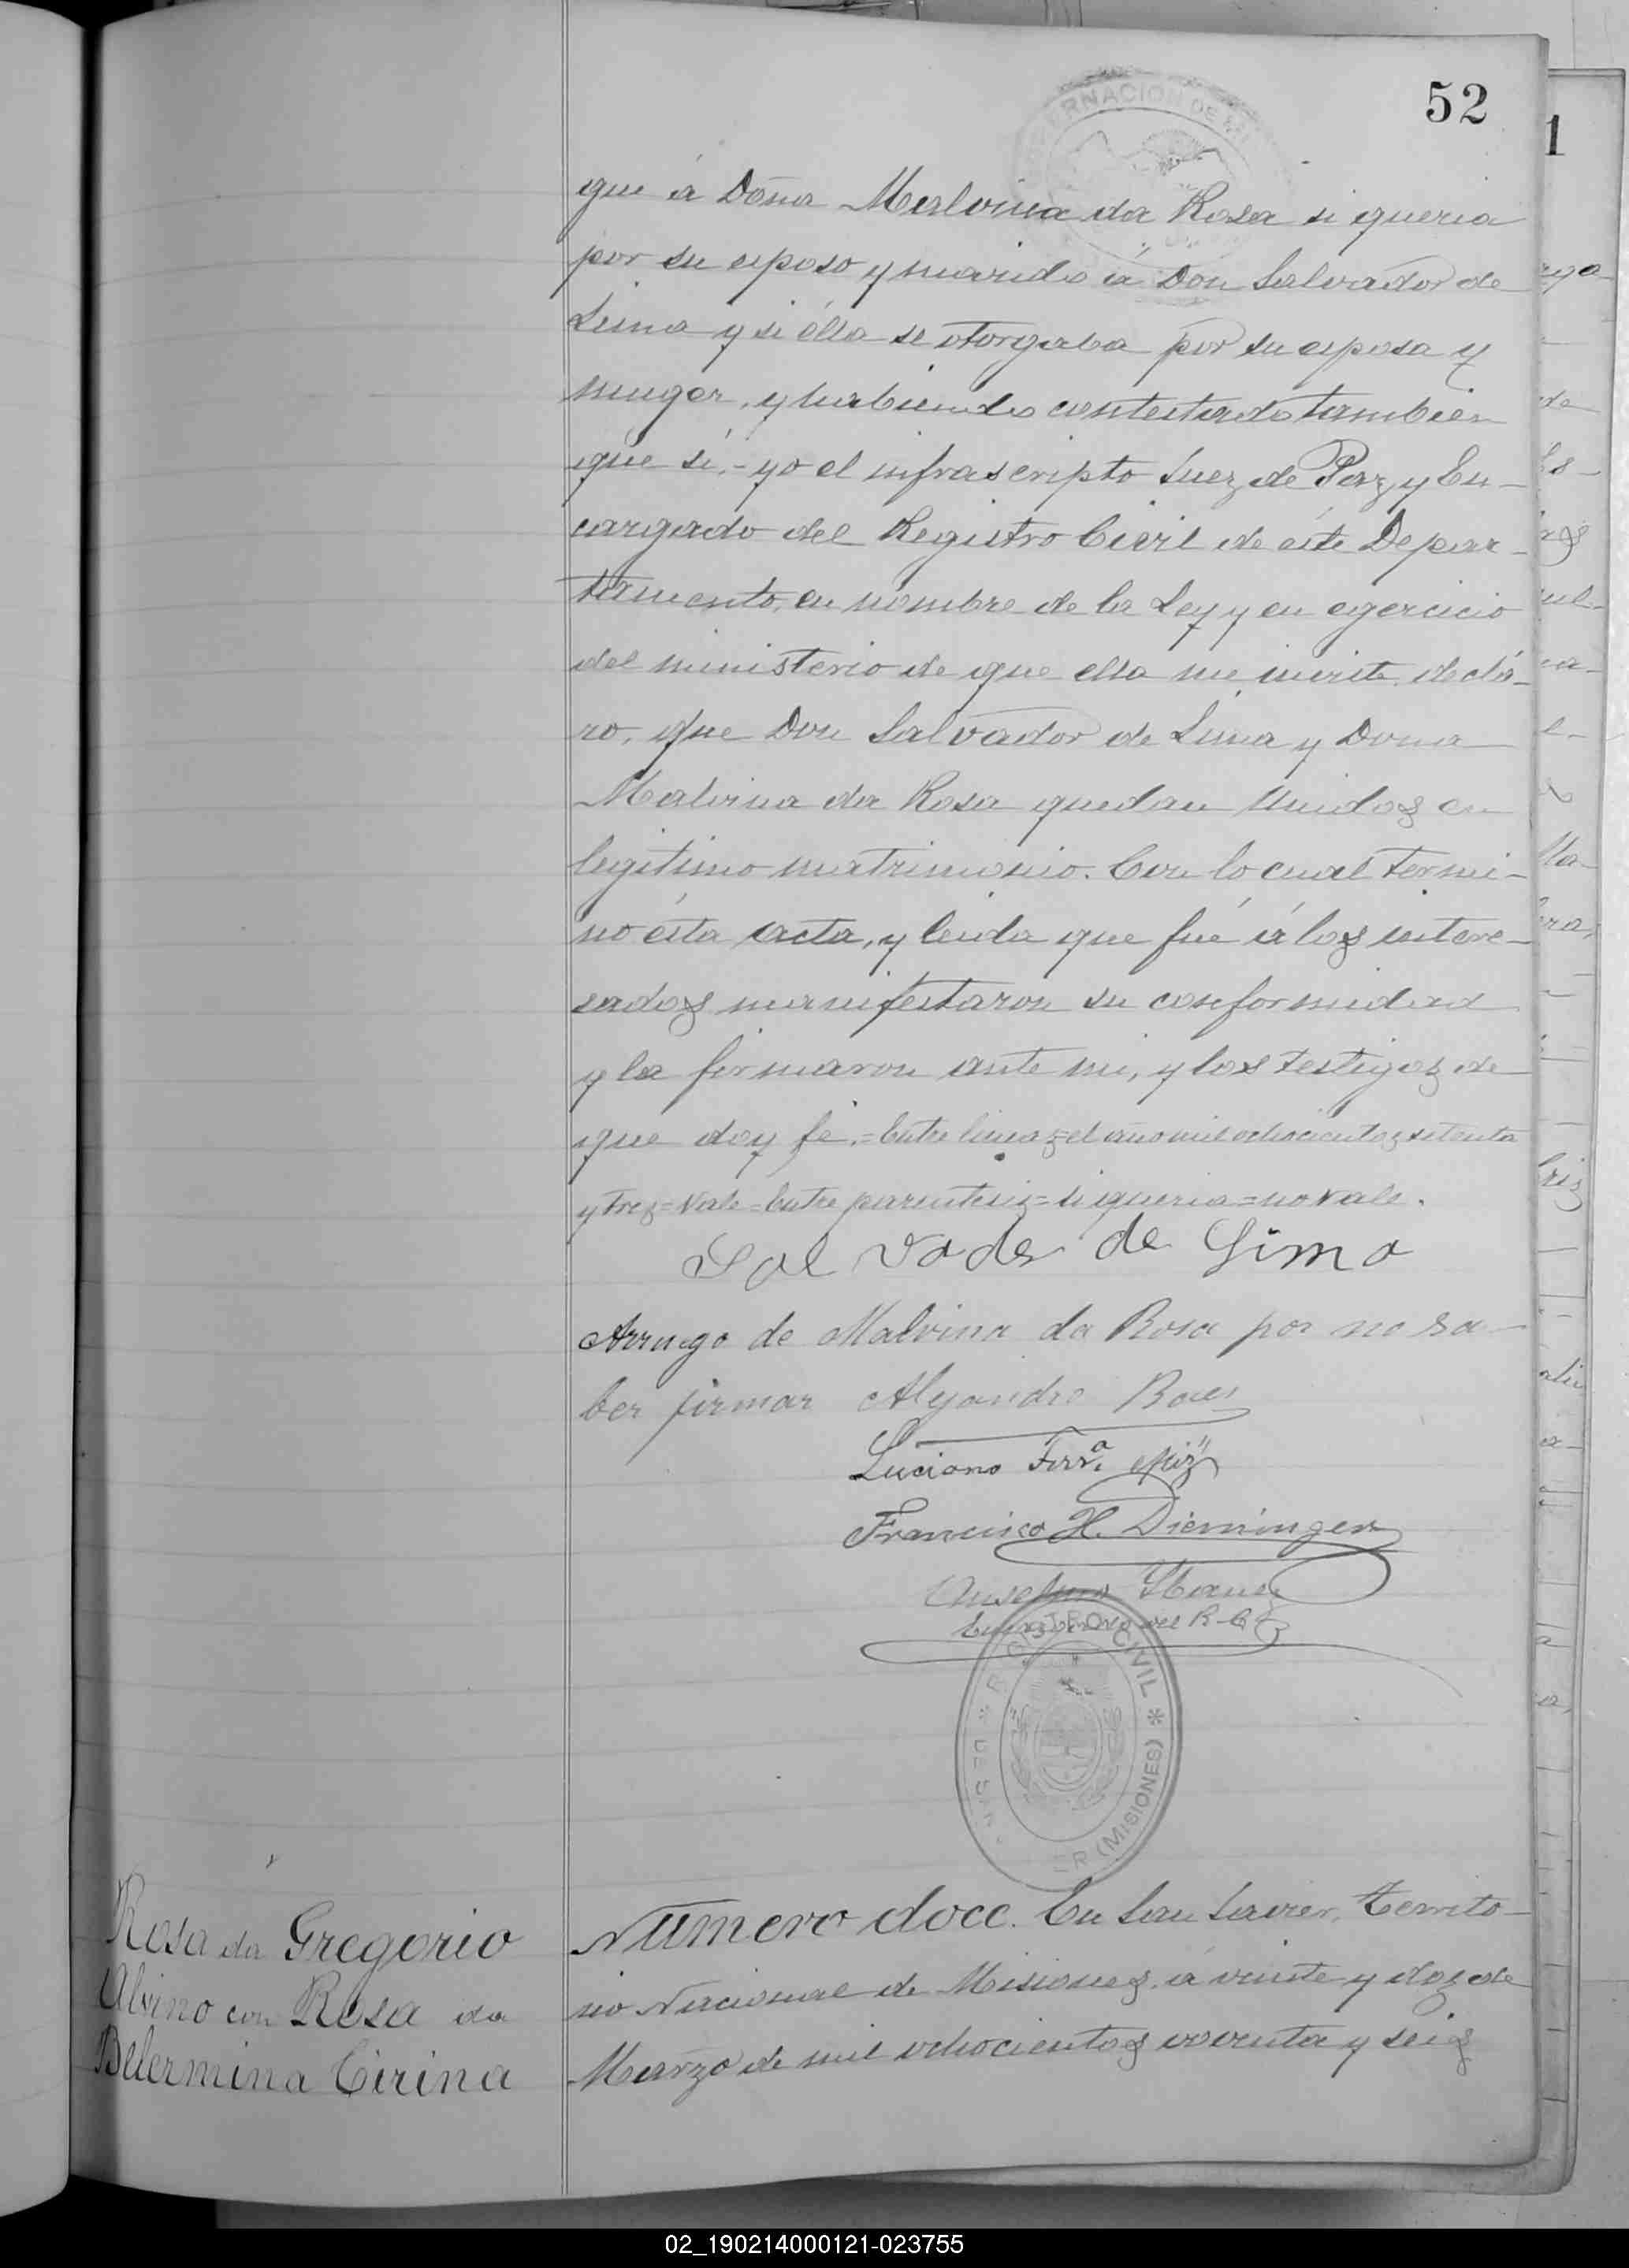 52
1
GOBERNACION DE MI
que á Doña Malvina da Rosa si queria
por su esposo y marido á Don Salvador de
Lima y si élla se otorgaba por su esposa y
muger, y habiendo contestado tambien
que sí,- yo el infrascripto Juez de Paz y En-
cargado del Registro Civil de éste Depar-
tamento, en nombre de la Ley y en egercicio
del ministerio de que ella me inviste, declá-
ro, que Don Salvador de Lima y Doña
Malvina da Rosa quedan unidos en
legítimo matrimonio. Con lo cual termi-
nó ésta acta, y leida que fué á los intere-
sados manifestaron su conformidad
y la firmaron ante mi, y los testigos de
que doy fé,=Entre lineas=el año mil ochocientos setenta
y tres=Vale=Entre parentesis=si queria=no vale.
Sal vador de Lima
Arruego de Malvina da Rosa por no sa-
ber firmar Alejandro Baes
Luciano Ferr.ª
Francisco H. Dieminger
Anselmo
Encargado del R-C
REGISTRO CIVIL * (MISIONES) * DE SAN
Rosa da Gregorio
Alvino con Rosa da
Belermina Cirina
Número doce. En San Javier, Territo-
rio Nacional de Misiones, á veinte y dos de
Marzo de mil ochocientos noventa y seis
02_190214000121-023755